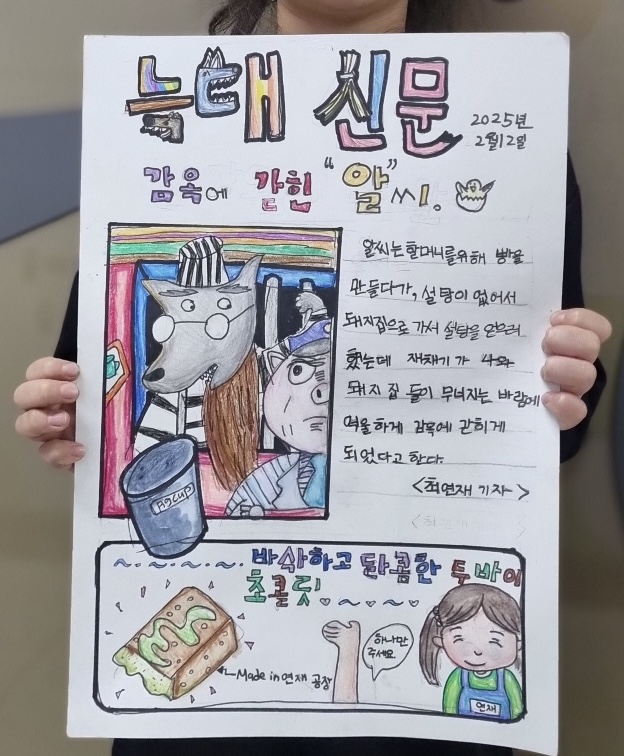 늑대 신문
2025년
2월12일
감옥에 갇힌 "알"씨.
알씨는할머니를위해 빵을
만들다가, 설탕이 없어서
돼지집으로 가서 설탕을 얻으러
했는데 재채기가 나와
돼지 집 들이 무너지는 바람에
억울하게 감옥에 갇히게
되었다고 한다.
<최연재 기자>
바삭하고 달콤한 두바이
초콜릿
Made in 연재 공장
하나만
주세요
연재